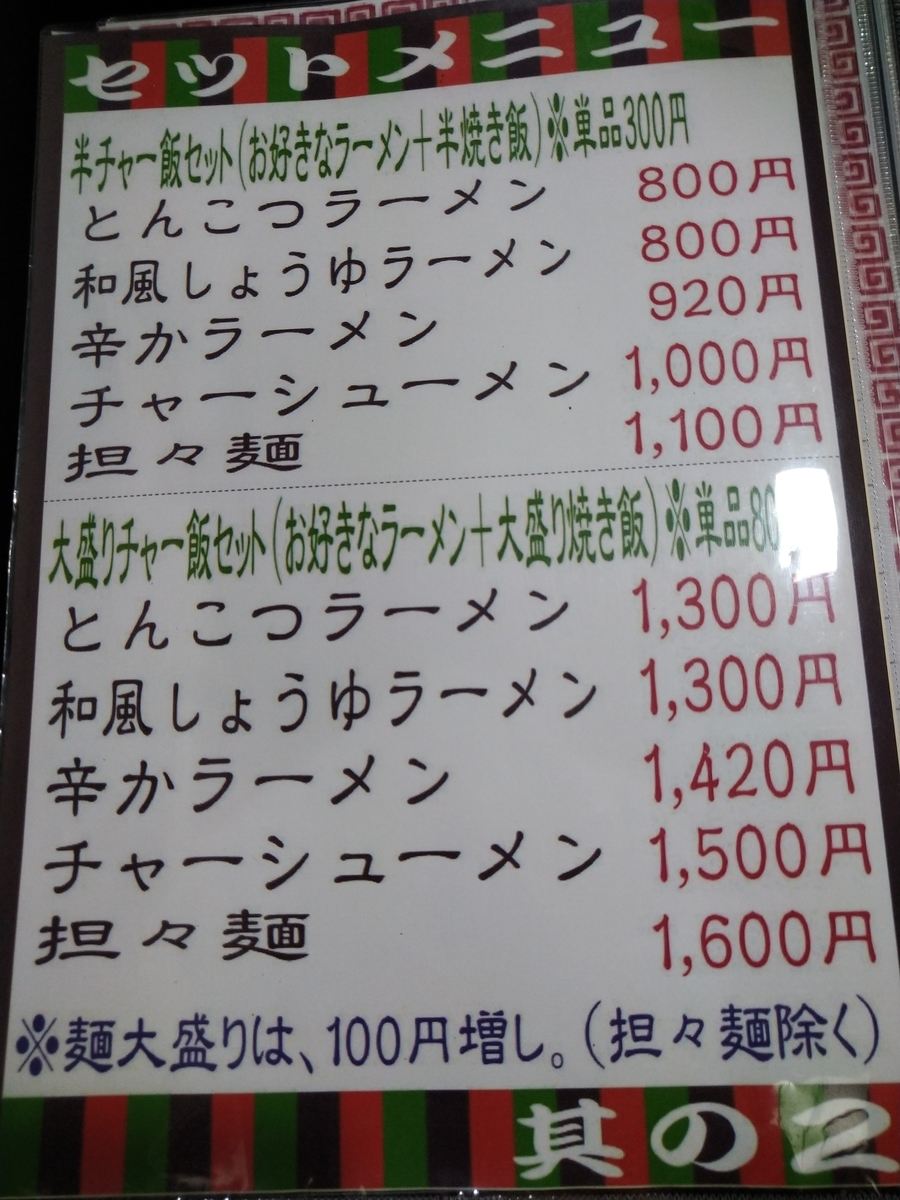 セットメニュー
半チャー飯セット(お好きなラーメン+半焼き飯)※単品300円
とんこつラーメン 800円
和風しょうゆラーメン 800円
辛かラーメン 920円
チャーシューメン 1,000円
担々麺 1,100円
大盛りチャー飯セット(お好きなラーメン+大盛り焼き飯)※単品
とんこつラーメン 1,300円
和風しょうゆラーメン 1,300円
辛かラーメン 1,420円
チャーシューメン 1,500円
担々麺 1,600円
※麺大盛りは、100円増し。(担々麺除く)
其の2